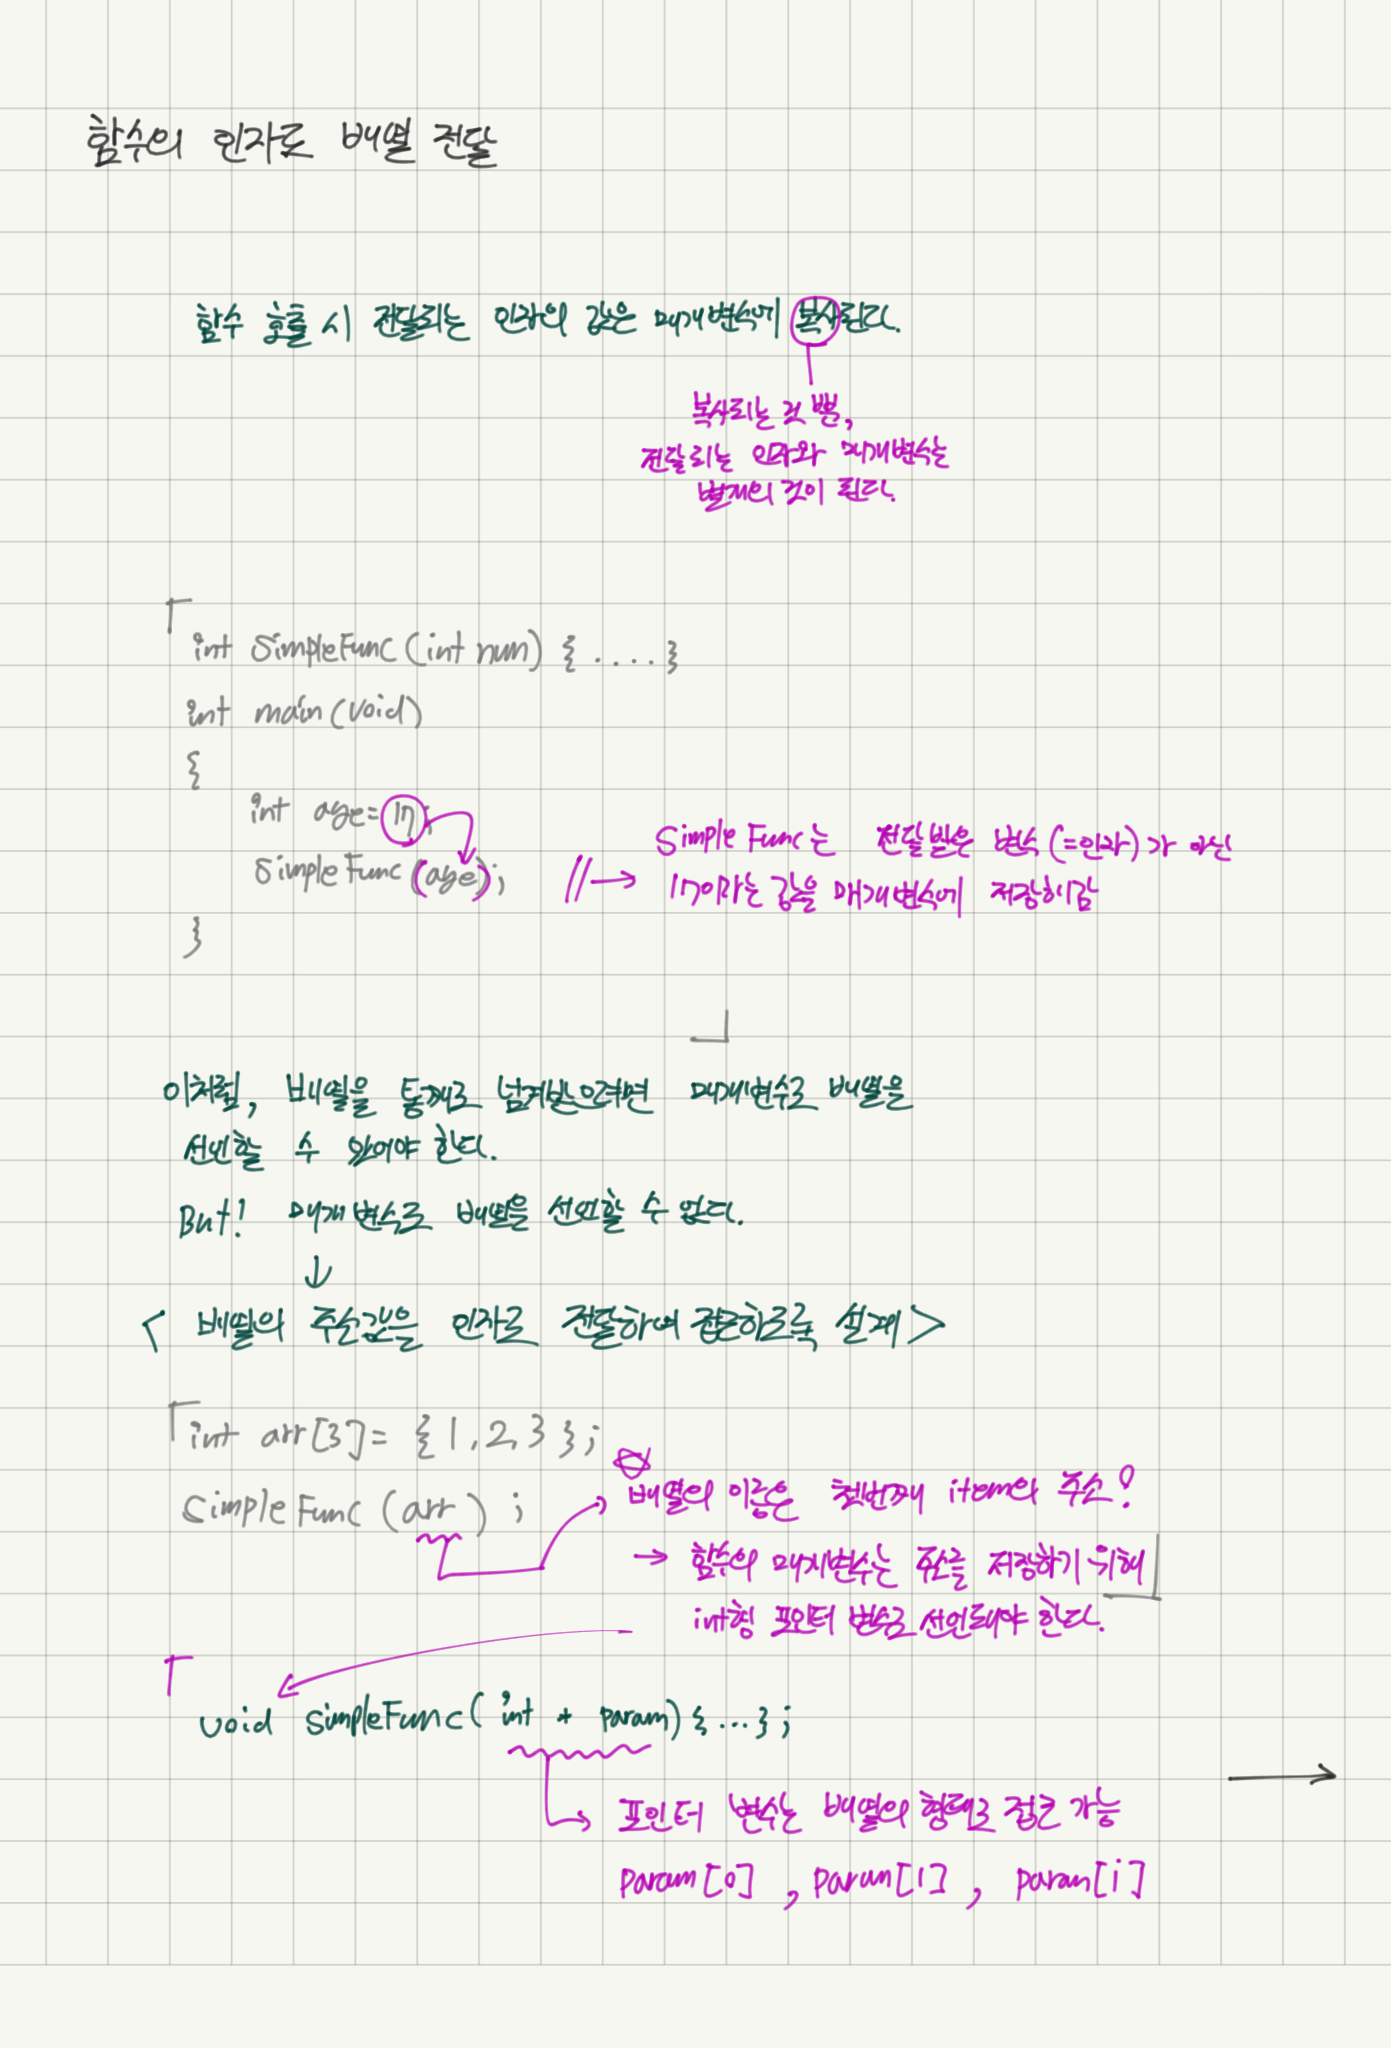 함수의 인자로 배열 전달
함수 호출 시 전달되는 인자의 값은 매개변수에 복사된다.
복사되는 것 뿐,
전달되는 인자와 매개변수는
별개의 것이 된다.
int SimpleFunc (int num) { . . . . }
int main (void)
{
int age = 17;
SimpleFunc (age);
// → Simple Func는 전달받은 변수 (=인자)가 아닌
17이라는 값을 매개변수에 저장시킴
}
이처럼, 배열을 통째로 넘겨받으려면 매개변수로 배열을
선언할 수 있어야 한다.
But! 매개변수로 배열을 선언할 수 없다.
↓
< 배열의 주소값을 인자로 전달하여 접근하도록 설계 >
int arr[3] = { 1, 2, 3 };
simpleFunc (arr) ;
배열의 이름은 첫번째 item의 주소!
→ 함수의 매개변수는 주소를 저장하기 위해
int형 포인터 변수로 선언돼야 한다.
void simpleFunc( int * param) { ... } ;
포인터 변수는 배열의 형태로 접근 가능
param[0] , param[1] , param[i]